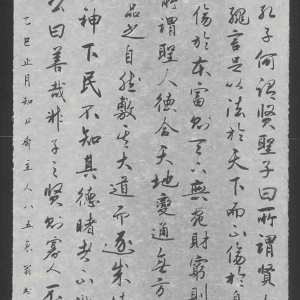 孔子何謂賢聖子曰所謂賢人
言足以法於天下而不傷於身
傷於本富則天下無宛財窮則
所謂聖人德合天地變通無方
品之自然敷其大道而遂成情
神下民不知其德睹者不
公曰善哉非子之賢則寡人不
乙巳正月知止齋主人八五老翁书